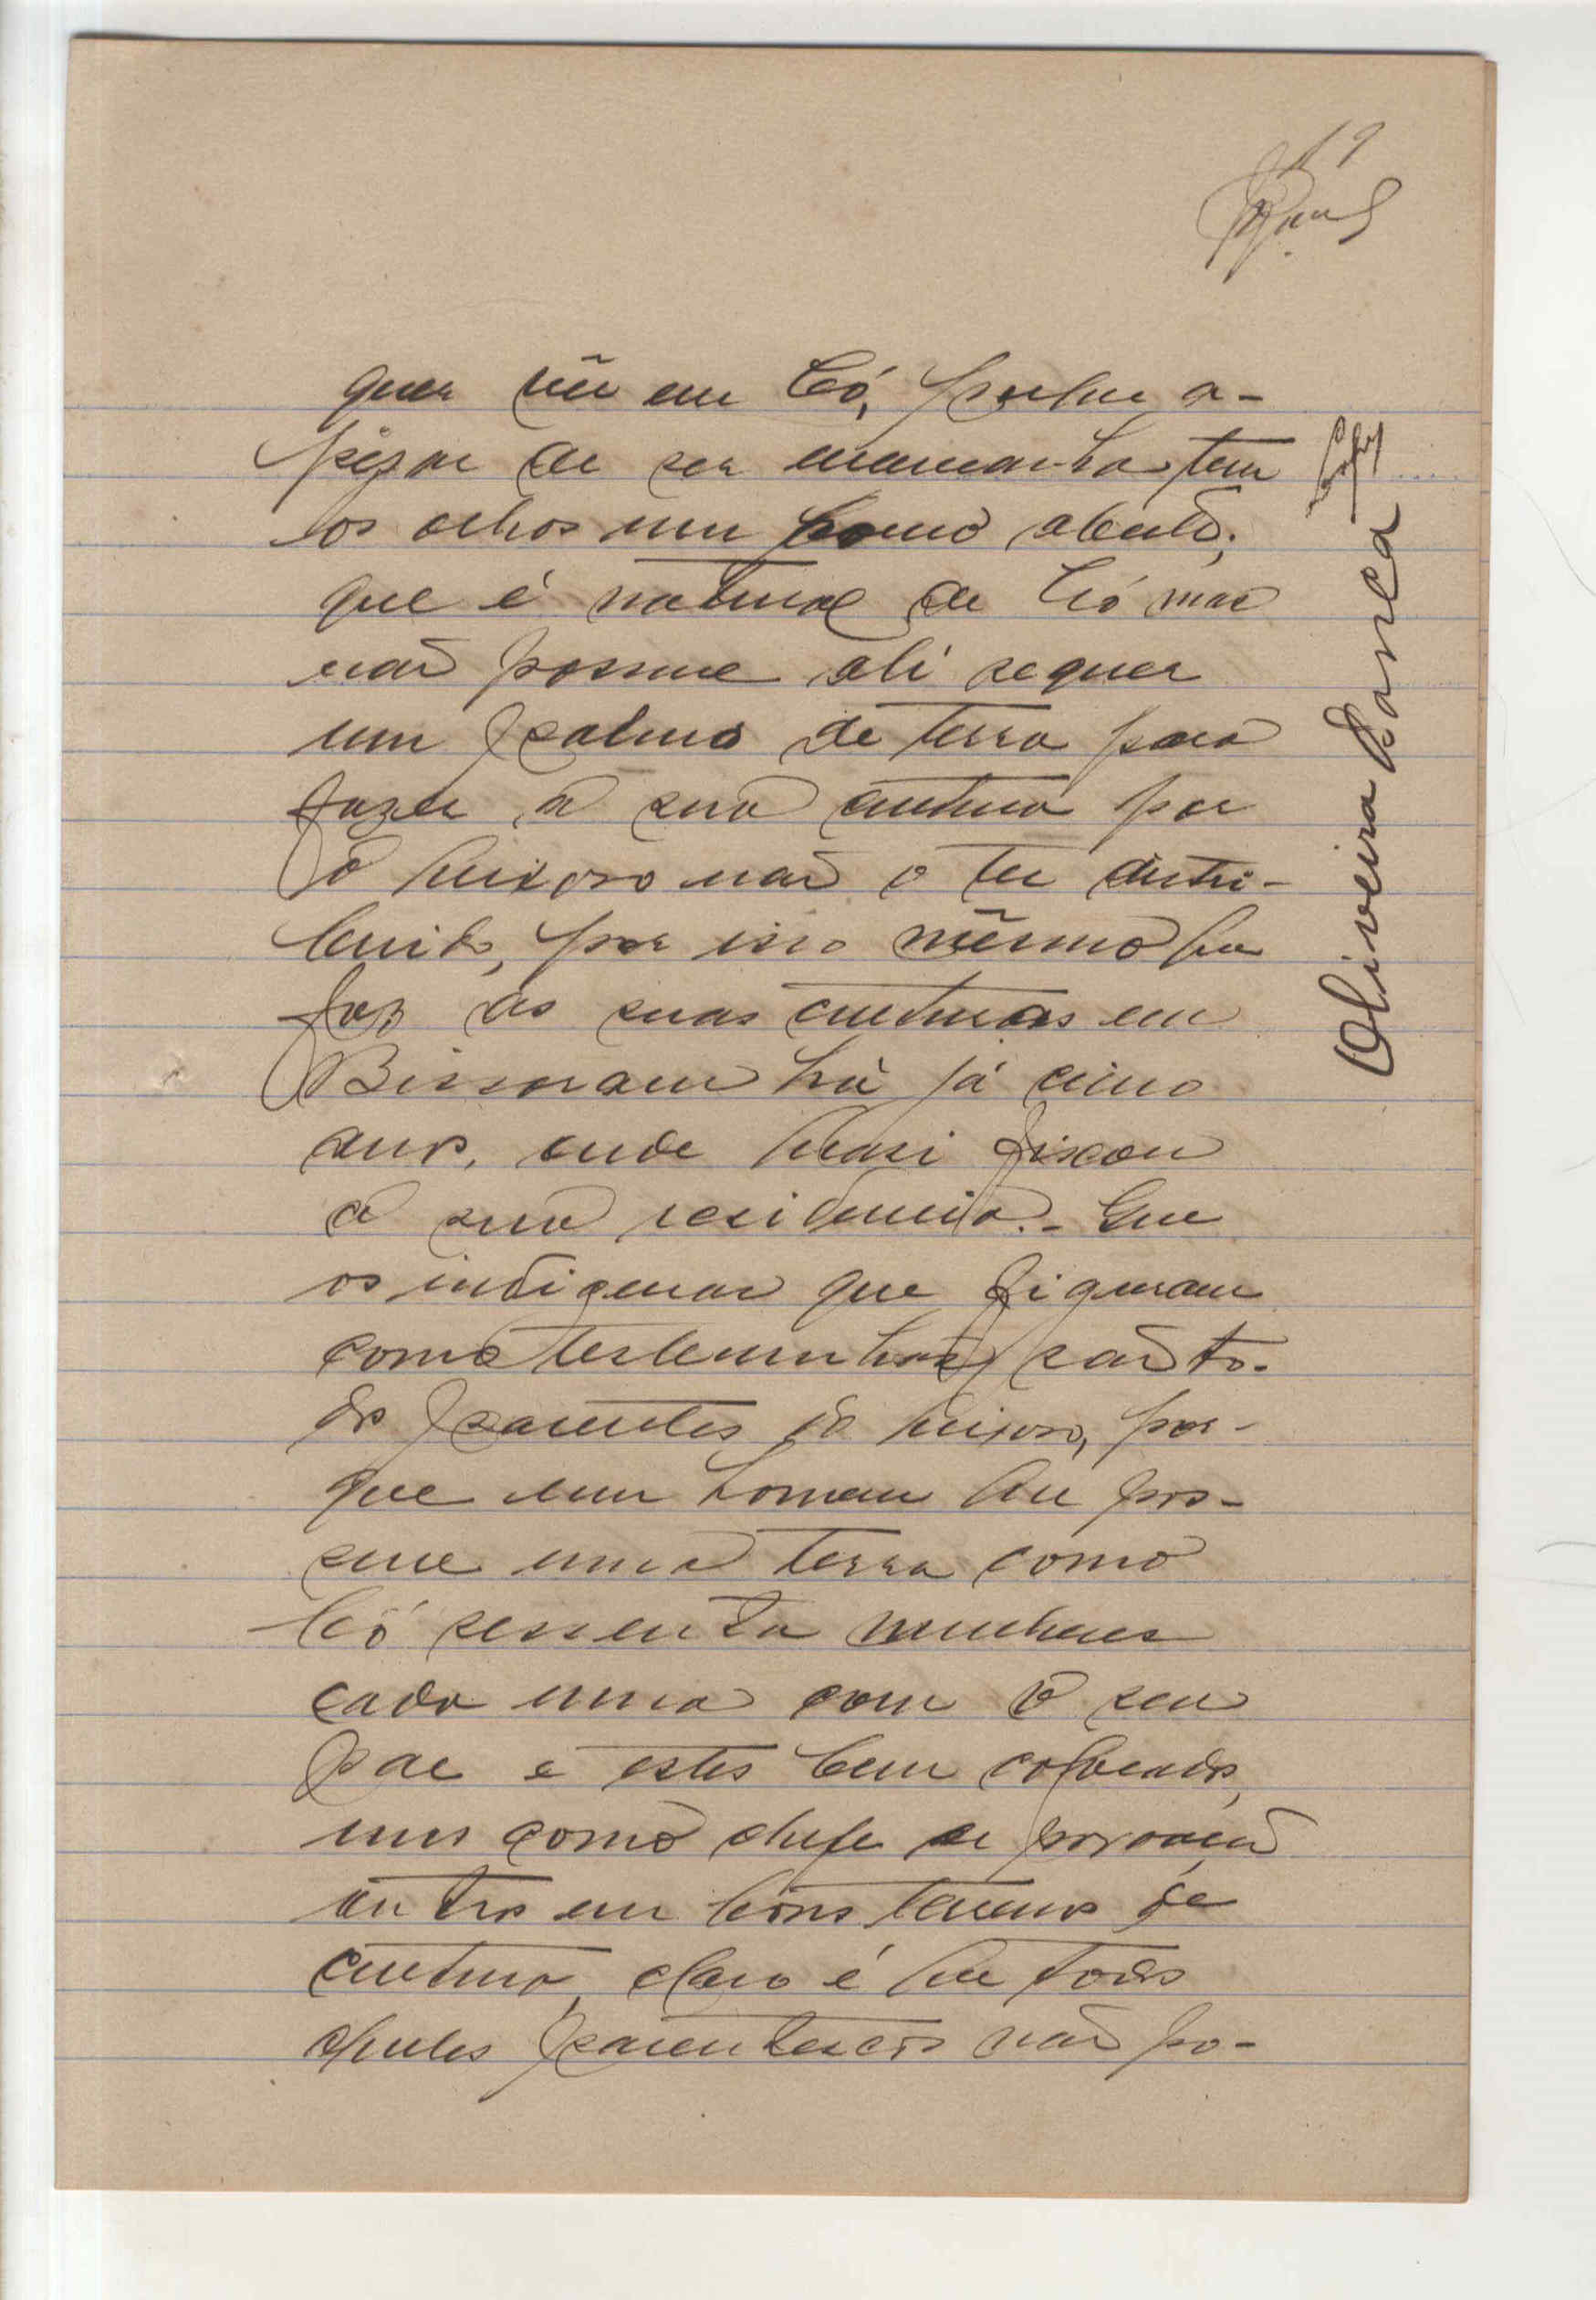 19
quer vêr em Có, porque a-
pezar de ser mancanha tem
os olhos um pouco aberto;
que é natural de Có mas
não possue ali sequer
um palmo de terra para
fazer a sua cultura por
o queixoso não o ter distri-
buido, por isso mêsmo que
faz as suas culturas em
Bissoram há já cinco
anos, onde quasi fixou
a sua residencia.- Que
os indigenas que figuram
como testemunhas são to-
dos parentes do queixoso, por-
que um homem que pos-
sue uma terra como
Có sessenta mulheres
cada uma com o seu
pae e estes bem colocados,
uns como chefe de povoação
outros em bons terrenos de
cultura, claro é que todos
aqueles parentescos não po-
Oliveira Sanca